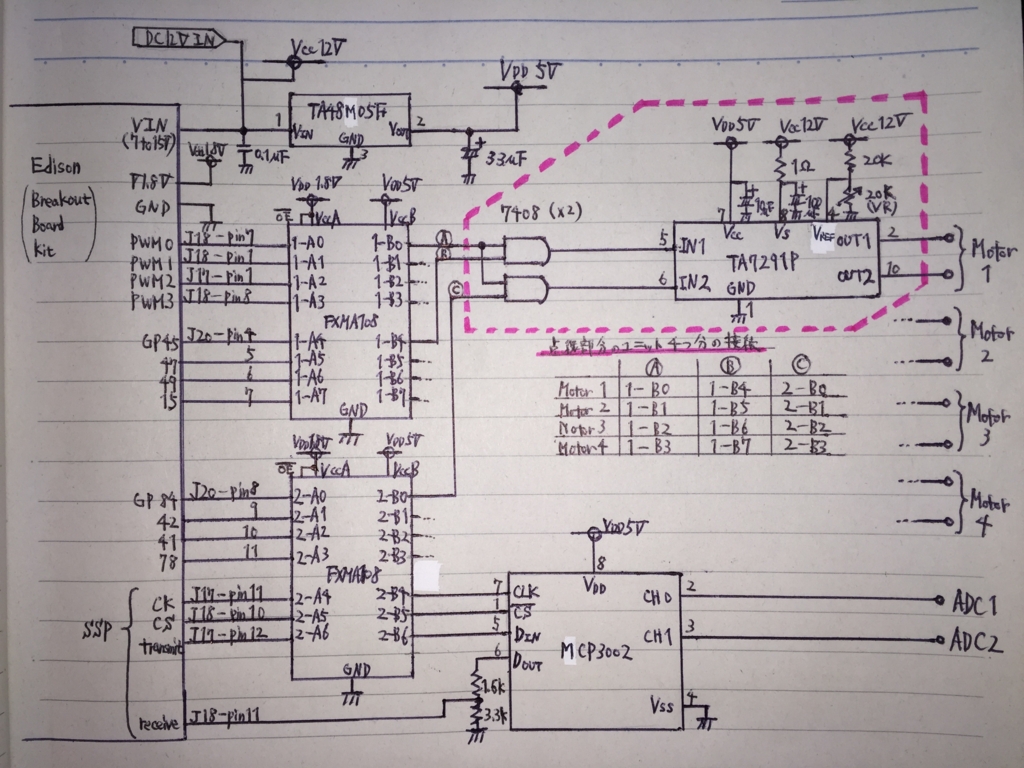 DC12V IN
Vcc12V
VDD 5V
TA48M05F
1
VIN
VOUT
2
GND
3
0.1μF
33μF
Edison
(Breakout
Board
Kit)
VIN
(7 to 15V)
VDD1.8V
T1.8V
GND
PWM0
J18-pin7
PWM1
J18-pin1
PWM2
J17-pin1
PWM3
J18-pin8
GP45
J20-pin4
47
5
49
6
15
7
VDD 1.8V
VDD5V
OE
VccA
VccB
1-A0
1-B0
1-A1
1-B1
1-A2
1-B2
1-A3
1-B3
FXMA108
1-A4
1-B4
1-A5
1-B5
1-A6
1-B6
1-A7
1-B7
GND
A
B
C
7408 (×2)
VDD5V
Vcc12V
Vcc12V
1Ω
20K
20K
(VR)
7
8
4
Vcc
Vs
VREF
OUT1
2
5
IN1
TA7291P
6
IN2
OUT2
10
GND
1
Motor
1
Motor
2
Motor
3
Motor
4
点線部分のユニット4つ分の接続
A B C
Motor 1 1-B0 1-B4 2-B0
Motor 2 1-B1 1-B5 2-B1
Motor 3 1-B2 1-B6 2-B2
Motor 4 1-B3 1-B7 2-B3
VDD1.8V
VDD5V
OE
VccA
VccB
GP 84
J20-pin8
2-A0
2-B0
42
9
2-A1
2-B1
41
10
2-A2
2-B2
78
11
2-A3
2-B3
FXMA108
SSP
CK
J17-pin11
2-A4
2-B4
CS
J18-pin10
2-A5
2-B5
transmit
J17-pin12
2-A6
2-B6
GND
receive
J18-pin11
1.6k
3.3k
VDD5V
8
VDD
7
CLK
1
CS
5
DIN
6
DOUT
MCP3002
CH0
2
ADC1
CH1
3
ADC2
Vss
4